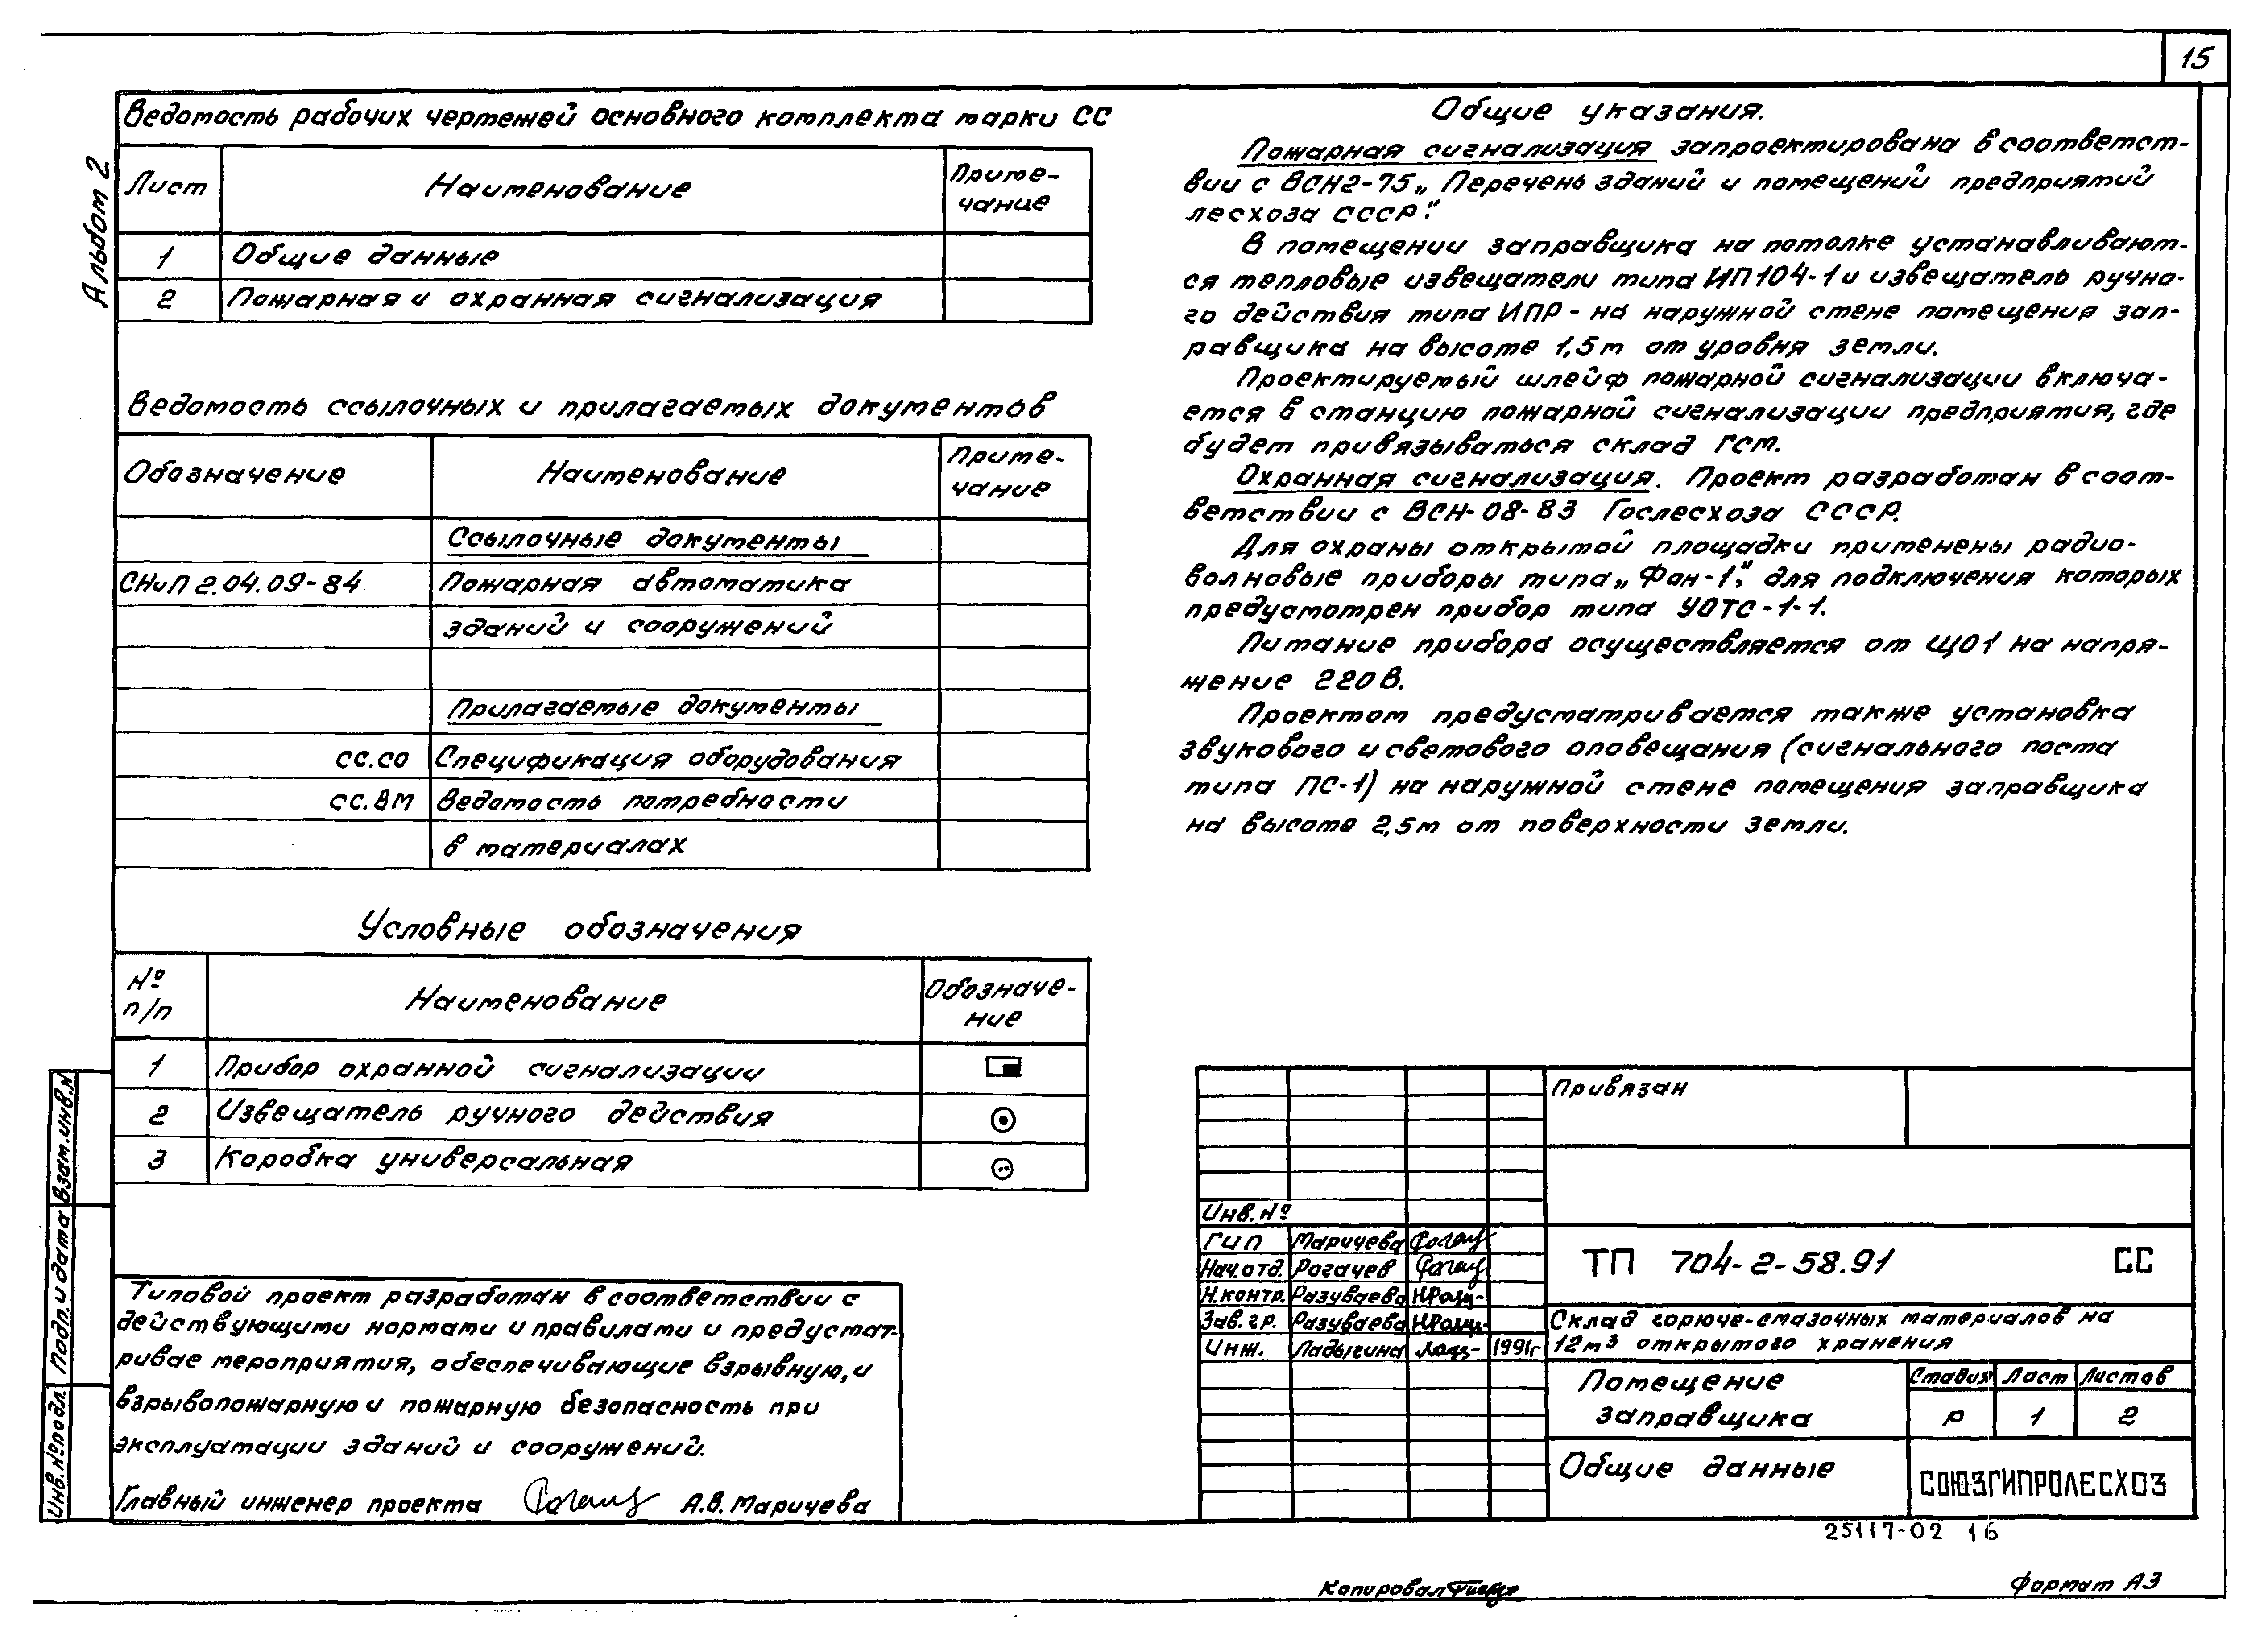 15
Альбом 2
Ведомость рабочих чертежей основного комплекта марки СС
Лист Наименование Приме-
чание
1 Общие данные
2 Пожарная и охранная сигнализация
Ведомость ссылочных и прилагаемых документов
Обозначение Наименование Приме-
чание
Ссылочные документы
СНиП 2.04.09-84 Пожарная автоматика
зданий и сооружений
Прилагаемые документы
СС.СО Спецификация оборудования
СС.ВМ Ведомость потребности
в материалах
Условные обозначения
№
п/п
Наименование Обозначе-
ние
1 Прибор охранной сигнализации
2 Извещатель ручного действия
3 Коробка универсальная
Типовой проект разработан в соответствии с
действующими нормами и правилами и предусмат-
ривае мероприятия, обеспечивающие взрывную, и
взрывопожарную и пожарную безопасность при
эксплуатации зданий и сооружений.
Главный инженер проекта А.В. Маричева
Общие указания.
Пожарная сигнализация запроектирована в соответст-
вии с ВСН2-75 „Перечень зданий и помещений предприятий
лесхоза СССР".
В помещении заправщика на потолке устанавливают-
ся тепловые извещатели типа ИП104-1 и извещатель ручно-
го действия типа ИПР - на наружной стене помещения зап-
равщика на высоте 1,5м от уровня земли.
Проектируемый шлейф пожарной сигнализации включа-
ется в станцию пожарной сигнализации предприятия, где
будет привязываться склад ГСМ.
Охранная сигнализация. Проект разработан в соот-
ветствии с ВСН-08-83 Гослесхоза СССР.
Для охраны открытой площадки применены радио-
волновые приборы типа „Фон-1", для подключения которых
предусмотрен прибор типа УОТС-1-1.
Питание прибора осуществляется от ЩО1 на напря-
жение 220В.
Проектом предусматривается также установка
звукового и светового оповещания (сигнального поста
типа ПС-1) на наружной стене помещения заправщика
на высоте 2,5м от поверхности земли.
Привязан
Инв. №
ГИП Маричева
Нач.отд. Рогачев
Н.контр. Разуваева
Зав. гр. Разуваева
Инж. Ладыгина 1991г
ТП 704-2-58.91 СС
Склад горюче-смазочных материалов на
12м³ открытого хранения
Помещение
заправщика
Стадия Лист Листов
Р 1 2
Общие данные
СОЮЗГИПРОЛЕСХОЗ
25117-02 16
Копировал
Формат А3
Взам.инв.№
Подп. и дата
Инв.№подл.